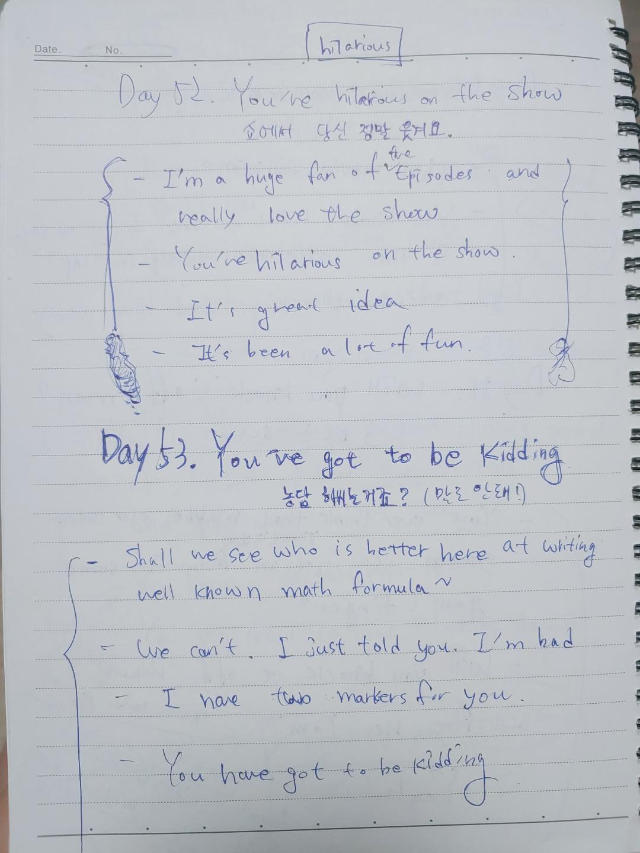 Date. No.
hilarious
Day 52. You've hilarious on the show
쇼에서 당신 정말 웃겨요.
the
- I'm a huge fan of Episodes and
really love the show
- You've hilarious on the show.
- It's great idea
- It's been a lot of fun.
Day 53. You've got to be kidding
농담 하시는거죠? (말도 안돼!)
- Shall we see who is better here at writing
well known math formula ~
- We can't. I just told you. I'm bad
- I have two markers for you.
- You have got to be kidding